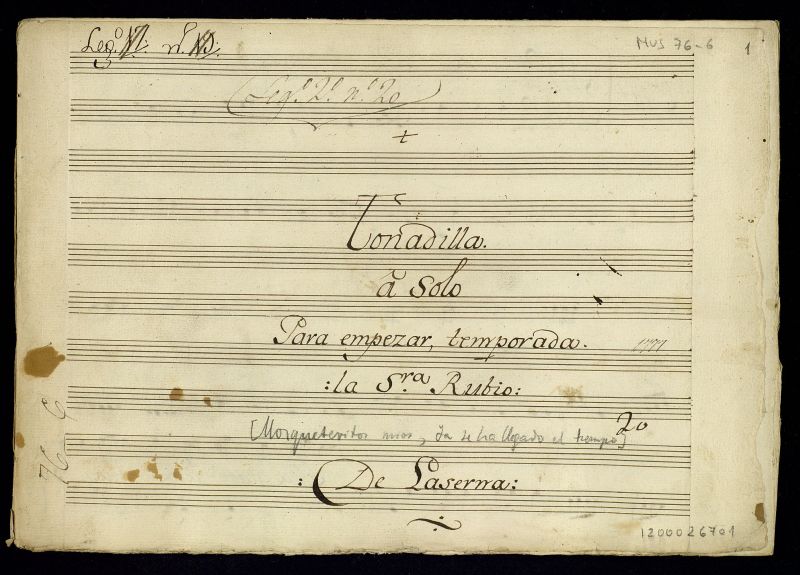 Leg.º : n.º :
MUS 76-6
1
Leg.º 2.º n.º 20
+
Tonadilla.
a solo
Para empezar, temporada.
1777
: la S.ra Rubio:
20
[Mosqueteritos mios, Ya se ha llegado el tiempo]
: De Laserna:
76 6
1200026701